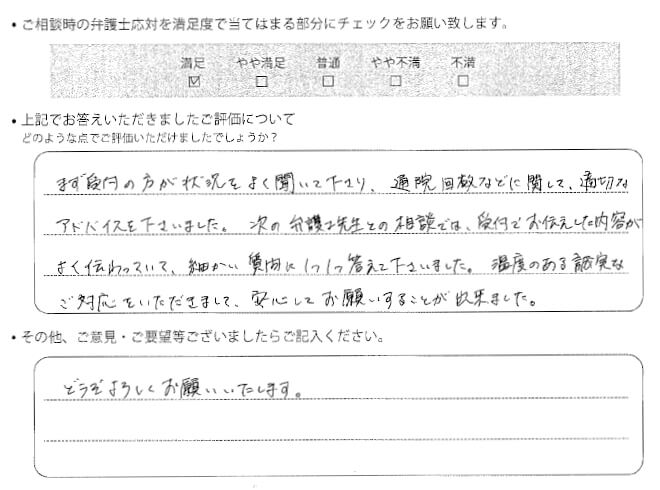 ・ご相談時の弁護士応対を満足度で当てはまる部分にチェックをお願い致します。
満足 やや満足 普通 やや不満 不満
☑ □ □ □ □
・上記でお答えいただきましたご評価について
どのような点でご評価いただけましたでしょうか？
まず受付の方が状況をよく聞いて下さり、通院回数などに関して、適切な
アドバイスを下さいました。次の弁護士先生との相談では、受付でお伝えした内容が
よく伝わっていて、細かい質問に1つ1つ答えて下さいました。温度のある誠実な
ご対応をいただきまして、安心してお願いすることが出来ました。
・その他、ご意見・ご要望等ございましたらご記入ください。
どうぞよろしくお願いいたします。